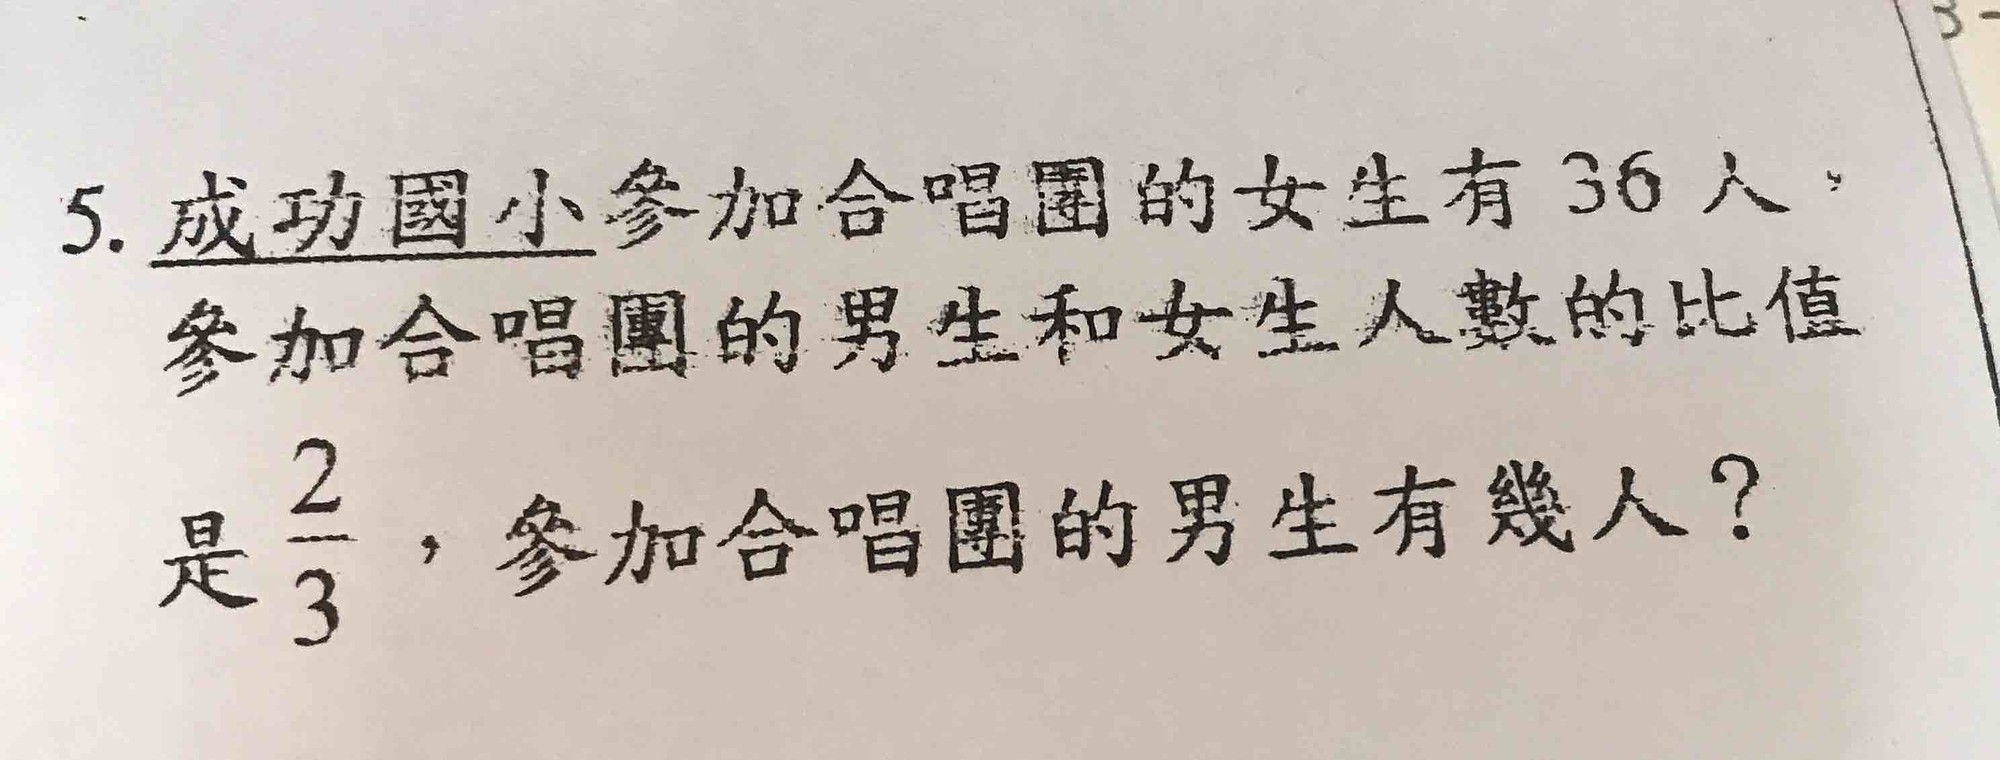 5. 成功國小參加合唱團的女生有 36 人，
參加合唱團的男生和女生人數的比值
是 2/3 ，參加合唱團的男生有幾人？